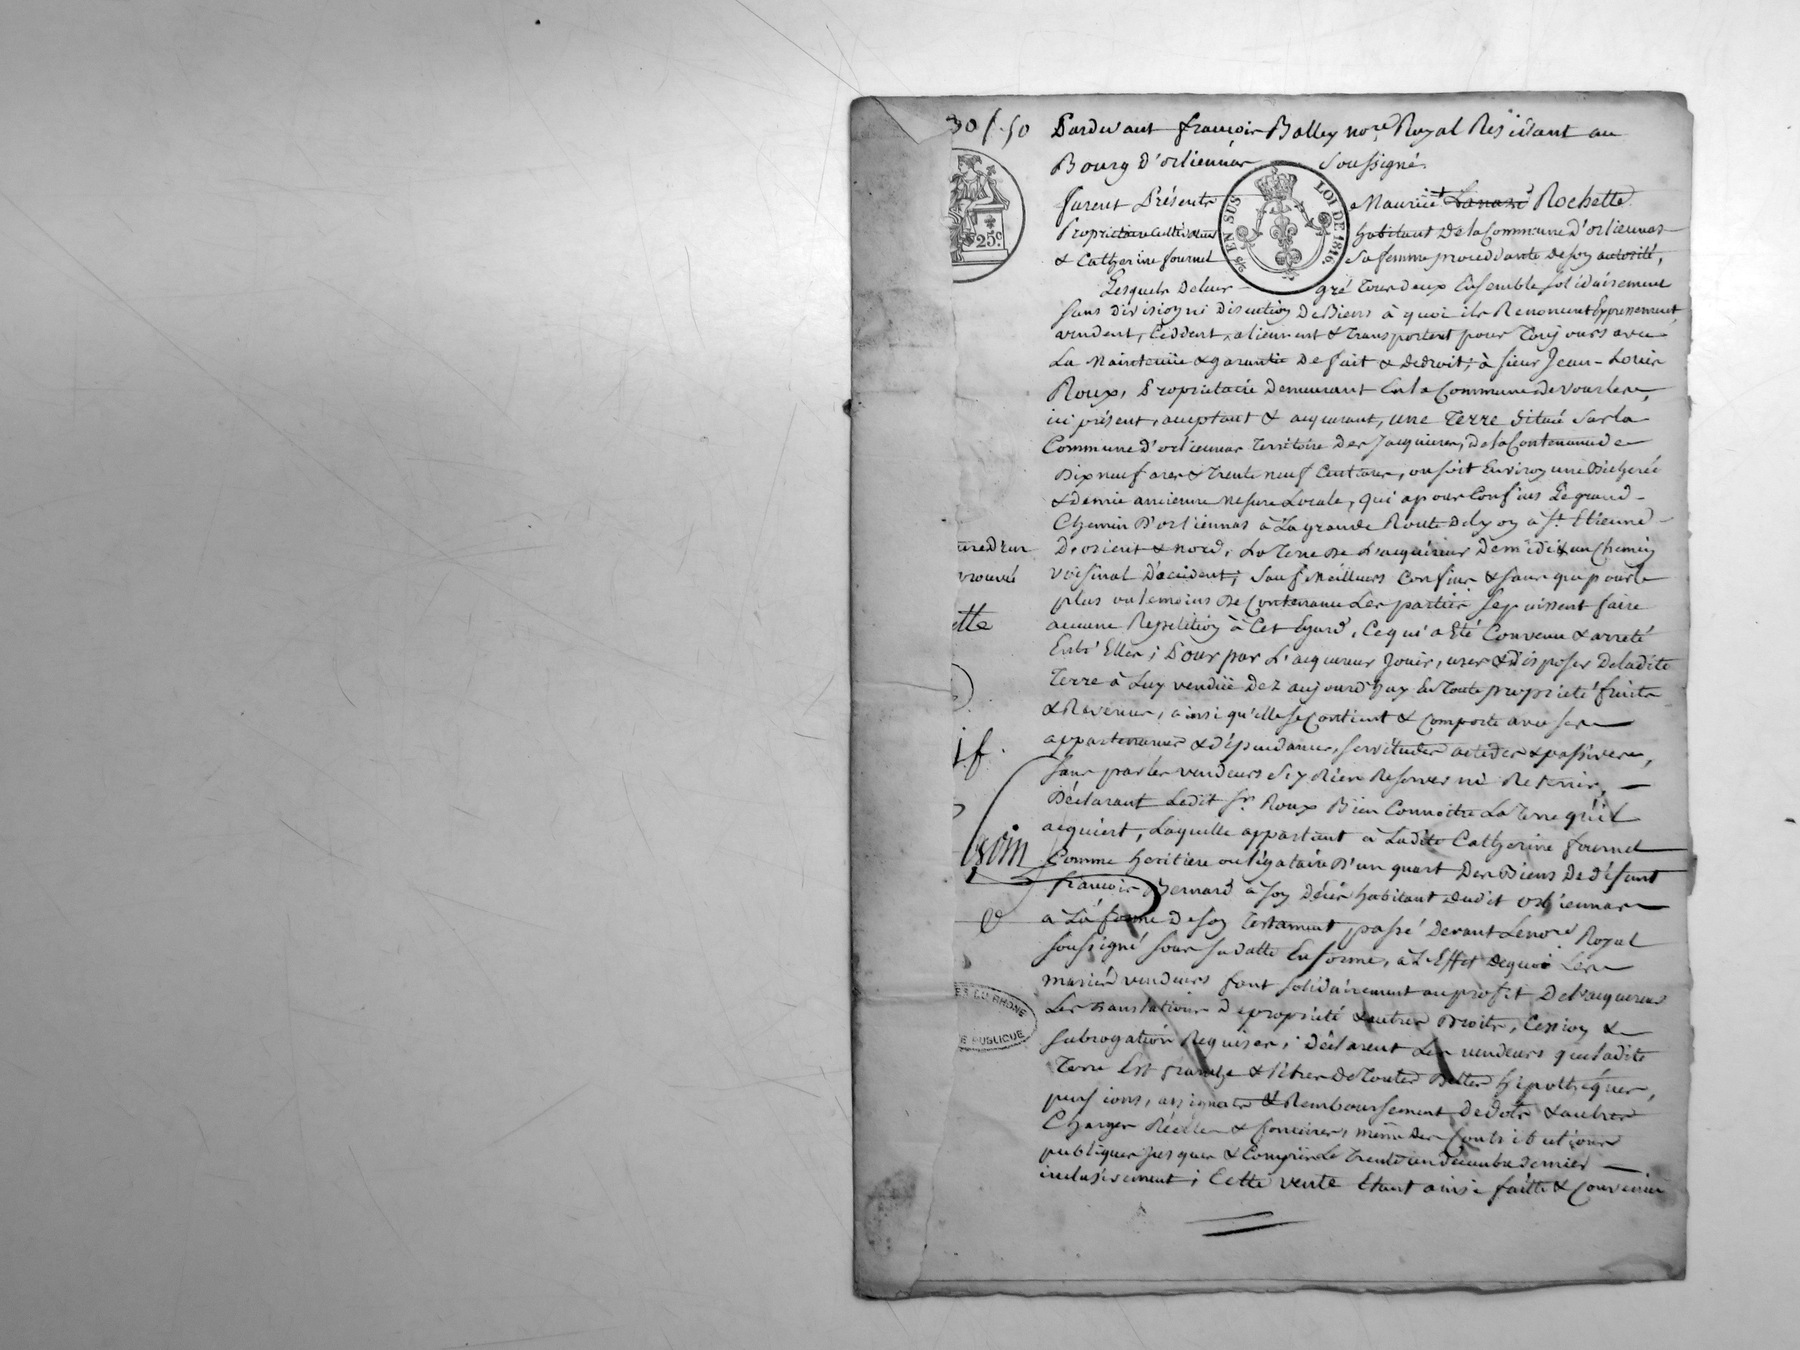 30 f. 50
Pardevant françois Balley no.re Royal Residant au
Bourg d'orliennas soussigné.
furent Présents Maurice + Rochette
Proprietaire Cultivateur habitant de la Commune d'orliennas
& Catherine fournel sa femme procedante de soy autorité,
Lesquels de leur gré tous deux Ensemble solidairement
sans division ni discution de Biens à quoi ils Renoncent Expressement,
vendent, Ceddent, alienent & transportent pour Toujours avec
La Maintenüe & garantie De fait & de droit, à sieur Jean-Louis
Roux, Proprietaire demeurant En la Commune de Vourles,
ici présent, acceptant & acquerant, une Terre situé sur la
Commune d'orliennas Territoire des Jacquieres, de la Contenance de
Dix neuf ares & trente neuf Centiares, ou soit Environ une Bicherée
& demie ancienne Mesure Locale, qui a pour Confins Le grand
Chemin D'orliennas à La grande Route de Lyon à St. Etienne
D'orient & nord, La Terre de L'acquéreur de midi & un Chemin
voisinal D'occident; sauf Meilleurs Confins & sans que pour le
plus ou le moins de Contenance Les parties se puissent faire
aucune Repetition à Cet Egard, Ce qui a Eté Convenu & arreté
Entr'Elles; Pour par L'acquereur Jouir, user & disposer de ladite
Terre à Luy vendüe dez aujourd'huy En Toute proprieté fruits
& Revenus, ainsi qu'elle se Contient & Comporte avec ses
appartenances & dépendances, servitudes actives & passives,
sans par les vendeurs s'y Rien Reserver ni Retenir,
Déclarant Ledit Sr. Roux Bien Connoitre La Terre qu'il
acquiert, Laquelle appartient à Ladite Catherine fournel
Comme heritiere ou légataire D'un quart Des Biens De défunt
françois Bernard à son Décès habitant dudit orliennas
a La forme De son Testament passé Devant Le no.re Royal
soussigné sous sa datte En forme, à L'Effet de quoi Les
mariés vendeurs font solidairement au profit De L'acquereur
Les translations de proprieté & autres Droits, Cession &
subrogation Requises; Déclarent Les vendeurs que ladite
Terre Est franche & libre de Toutes Dettes hipothéques,
pensions, assignats & Remboursement de dots & autres
Charges Réelles & foncieres, même des Contributions
publiques jusques & Compris Le Trente un decembre dernier
inclusivement; Cette vente Etant ainsi faitte & Convenüe
25c
EN SUS
LOI DE 1816
rouvé
ette
if.
ES DU RHONE
E PUBLIQUE